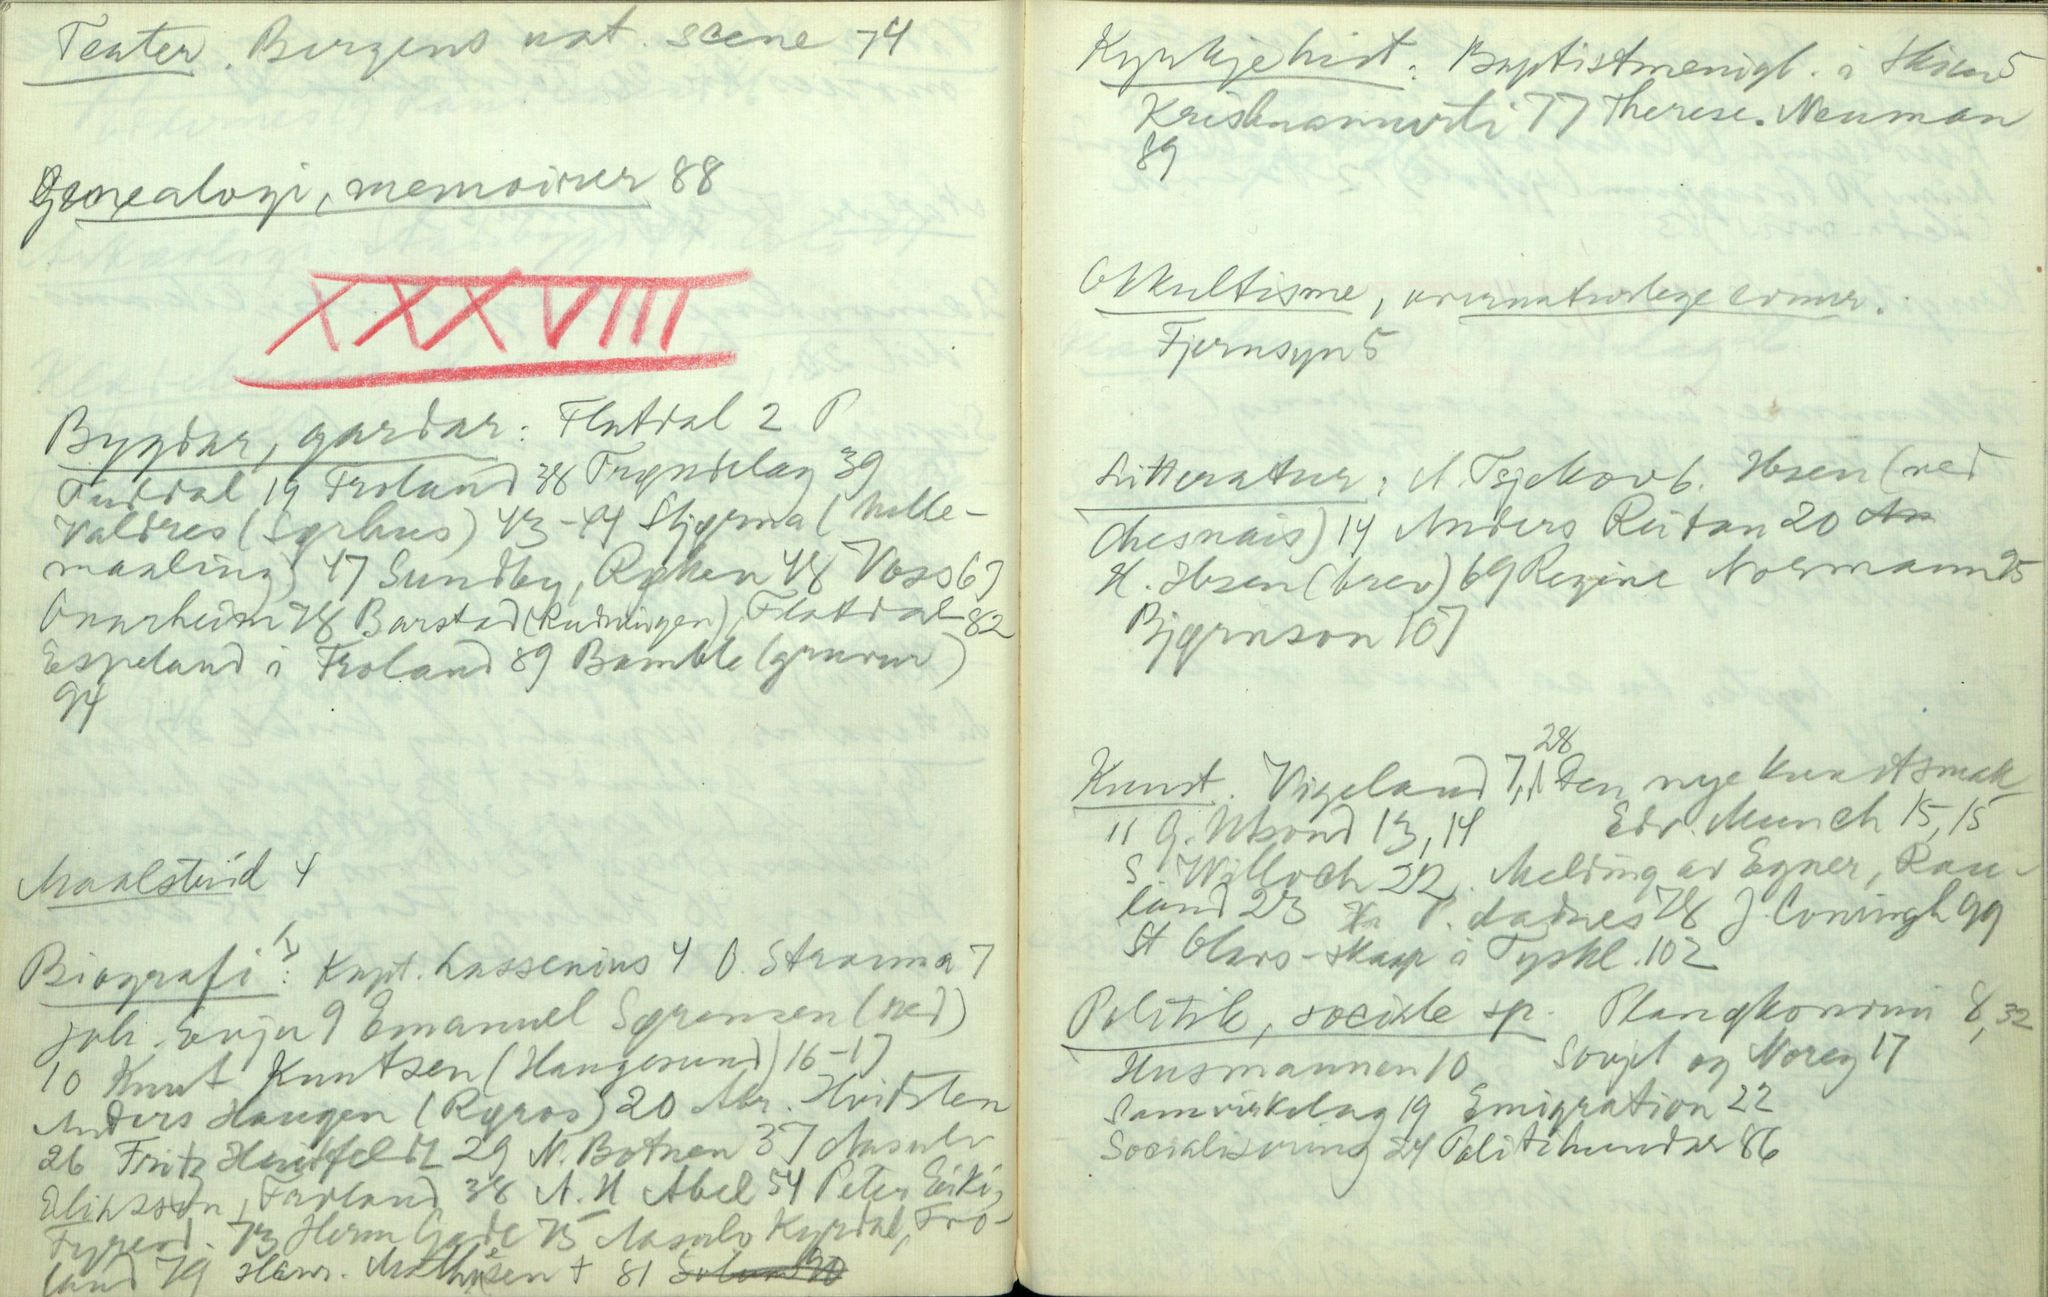 Teater. Bergens nat. scene 74
Genealogi, memoirer 88
XXXVIII
Bygdar, gardar: Flatdal 2
Tuddal 19 Froland 38 Trøndelag 39
Valdres (Sørhus) 43-44 Stjørna (Mølle-
maaling) 47 Sundby, Røken 48 Voss 67
Onarheim 78 Barstad (Rudningen), Flatdal 82
Espeland i Froland 89 Bamble (gruver)
94
Maalstrid 4
Biografi: Kapt. Lassenius 4 O. Strauma 7
Joh. Evju 9 Emanuel Sørensen (ned)
10 Knut Knutsen (Haugesund) 16-17
Anders Haugen (Røros) 20 Abr. Hvidsten
26 Fritz Huitfeldt 29 N. Botnen 37 Aasulv
Froland 38 N. H Abel 54 Peter
73 Herm Gade 75 Aasulv Kyrdal, Fro-
land 79 Haar. Mathisen + 81
Kyrkjehist: Baptistmenigh. i Skien 5
Krishnamurti 77 Therese. Neuman
89
Okkultisme, overnaturlege evner.
Fjernsyn 5
Litteratur: A. Tsjekov 6. Ibsen (ned
Chesnais) 14 Anders Reitan 20 An
H. Ibsen (brev) 69 Regine Normann 95
Bjørnson 107
Kunst. Vigeland 7, 28 den nye kunstsmak
11 G. Utsond 13, 14 Edv. Munch 15, 15
S Willoch 22. Melding av Egner, Rau-
land 23 P. Aadnes 78 J. Coningh 99
St Olavs-skaap i Tyskl. 102
Politik, sociale sp. Planøkonomi 8, 32
Husmannen 10 Sovjet og Noreg 17
Samvirkelag 19 Emigration 22
Socialisering 24 Politihundar 86